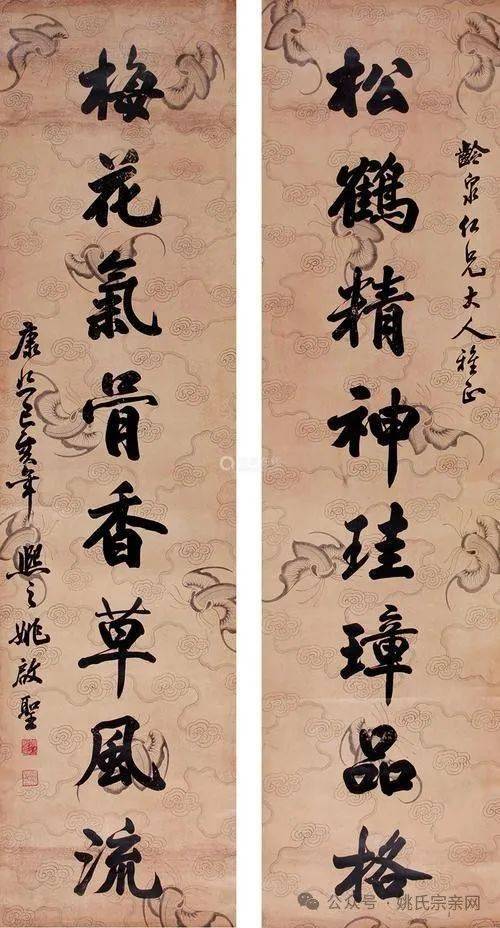 齡泉仁兄大人雅正
松鶴精神珪璋品格
梅花氣骨香草風流
康熙己亥年 熙之姚啟聖
公众号 · 姚氏宗亲网